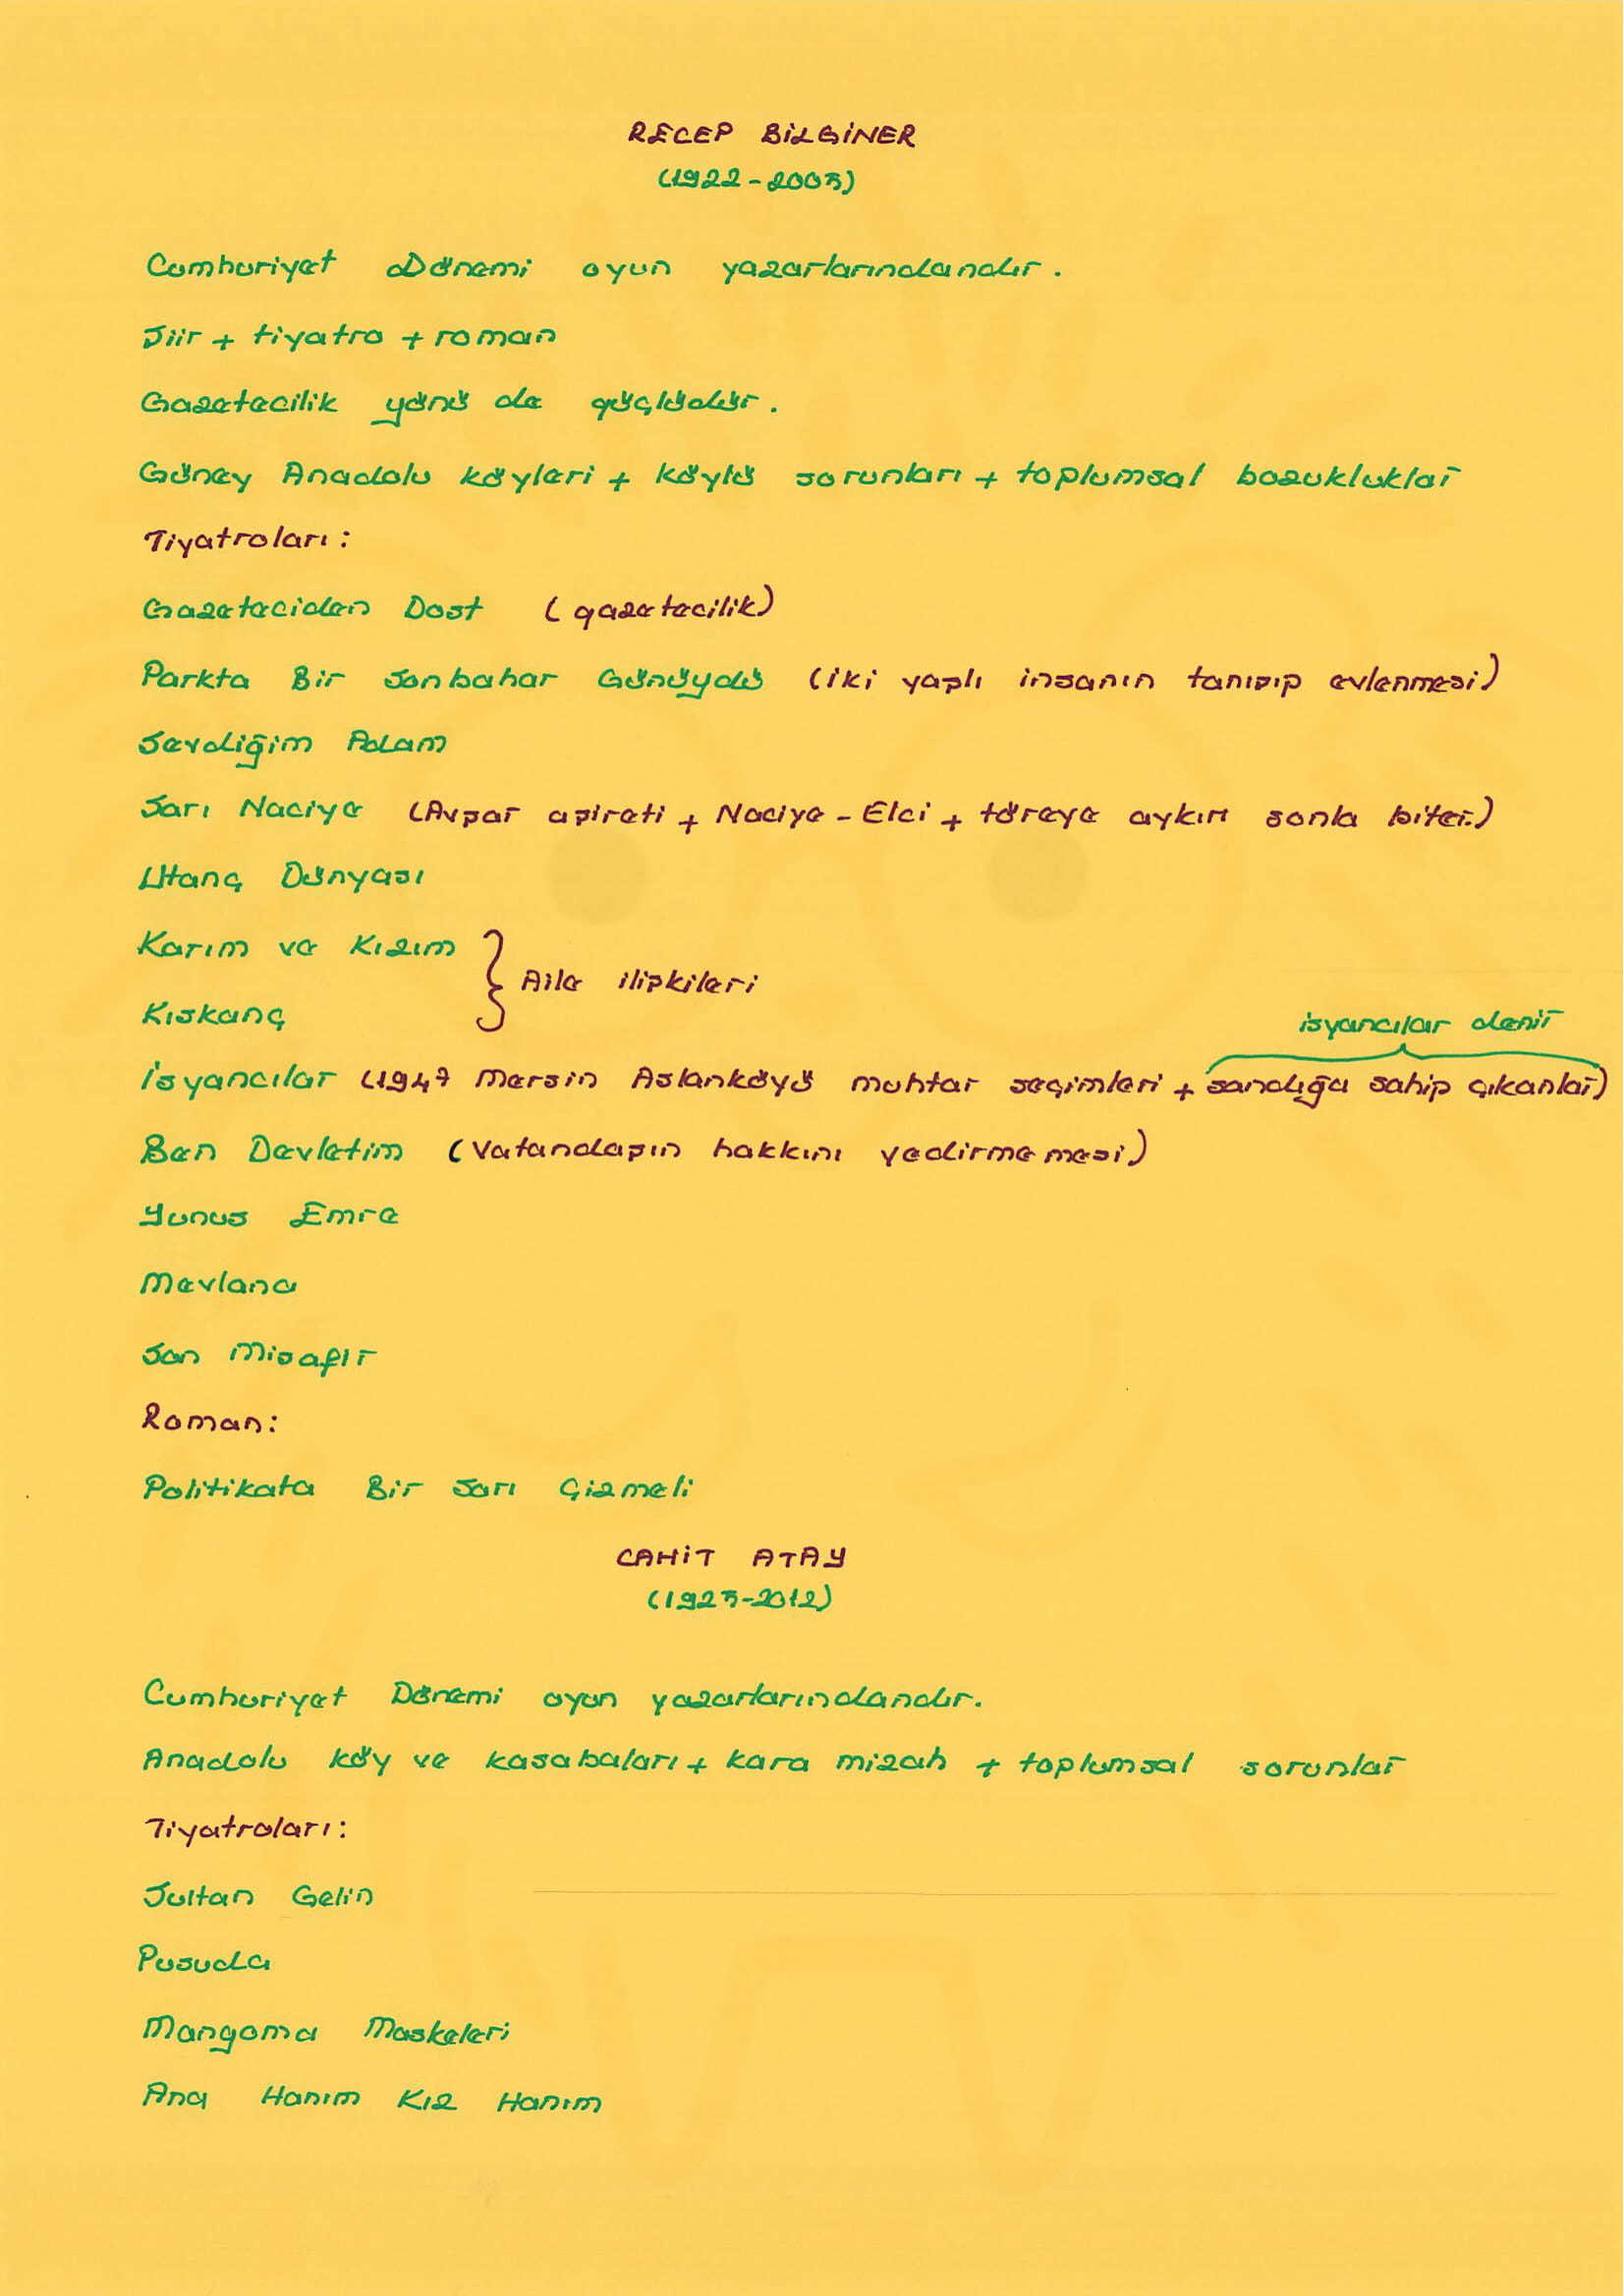 RECEP BİLGİNER
(1922-2005)
Cumhuriyet Dönemi oyun yazarlarındandır.
Şiir + tiyatro + roman
Gazetecilik yönü de güçlüdür.
Güney Anadolu köyleri + köylü sorunları + toplumsal bozukluklar
Tiyatroları:
Gazeteciden Dost (gazetecilik)
Parkta Bir Sonbahar Günüydü (iki yaşlı insanın tanışıp evlenmesi)
Sevdiğim Adam
Sarı Naciye (Avşar aşireti + Naciye-Elci + töreye aykırı sonla biter.)
Utanç Dünyası
Karım ve Kızım
Aile ilişkileri
Kıskanç
isyancılar denir
İsyancılar (1947 Mersin Aslanköyü muhtar seçimleri + sandığa sahip çıkanlar)
Ben Devletim (Vatandaşın hakkını yedirmemesi)
Yunus Emre
Mevlana
Son Misafir
Roman:
Politikata Bir Sarı Çizmeli
CAHİT ATAY
(1925-2012)
Cumhuriyet Dönemi oyun yazarlarındandır.
Anadolu köy ve kasabaları + kara mizah + toplumsal sorunlar
Tiyatroları:
Sultan Gelin
Pusuda
Mangoma Maskeleri
Ana Hanım Kız Hanım